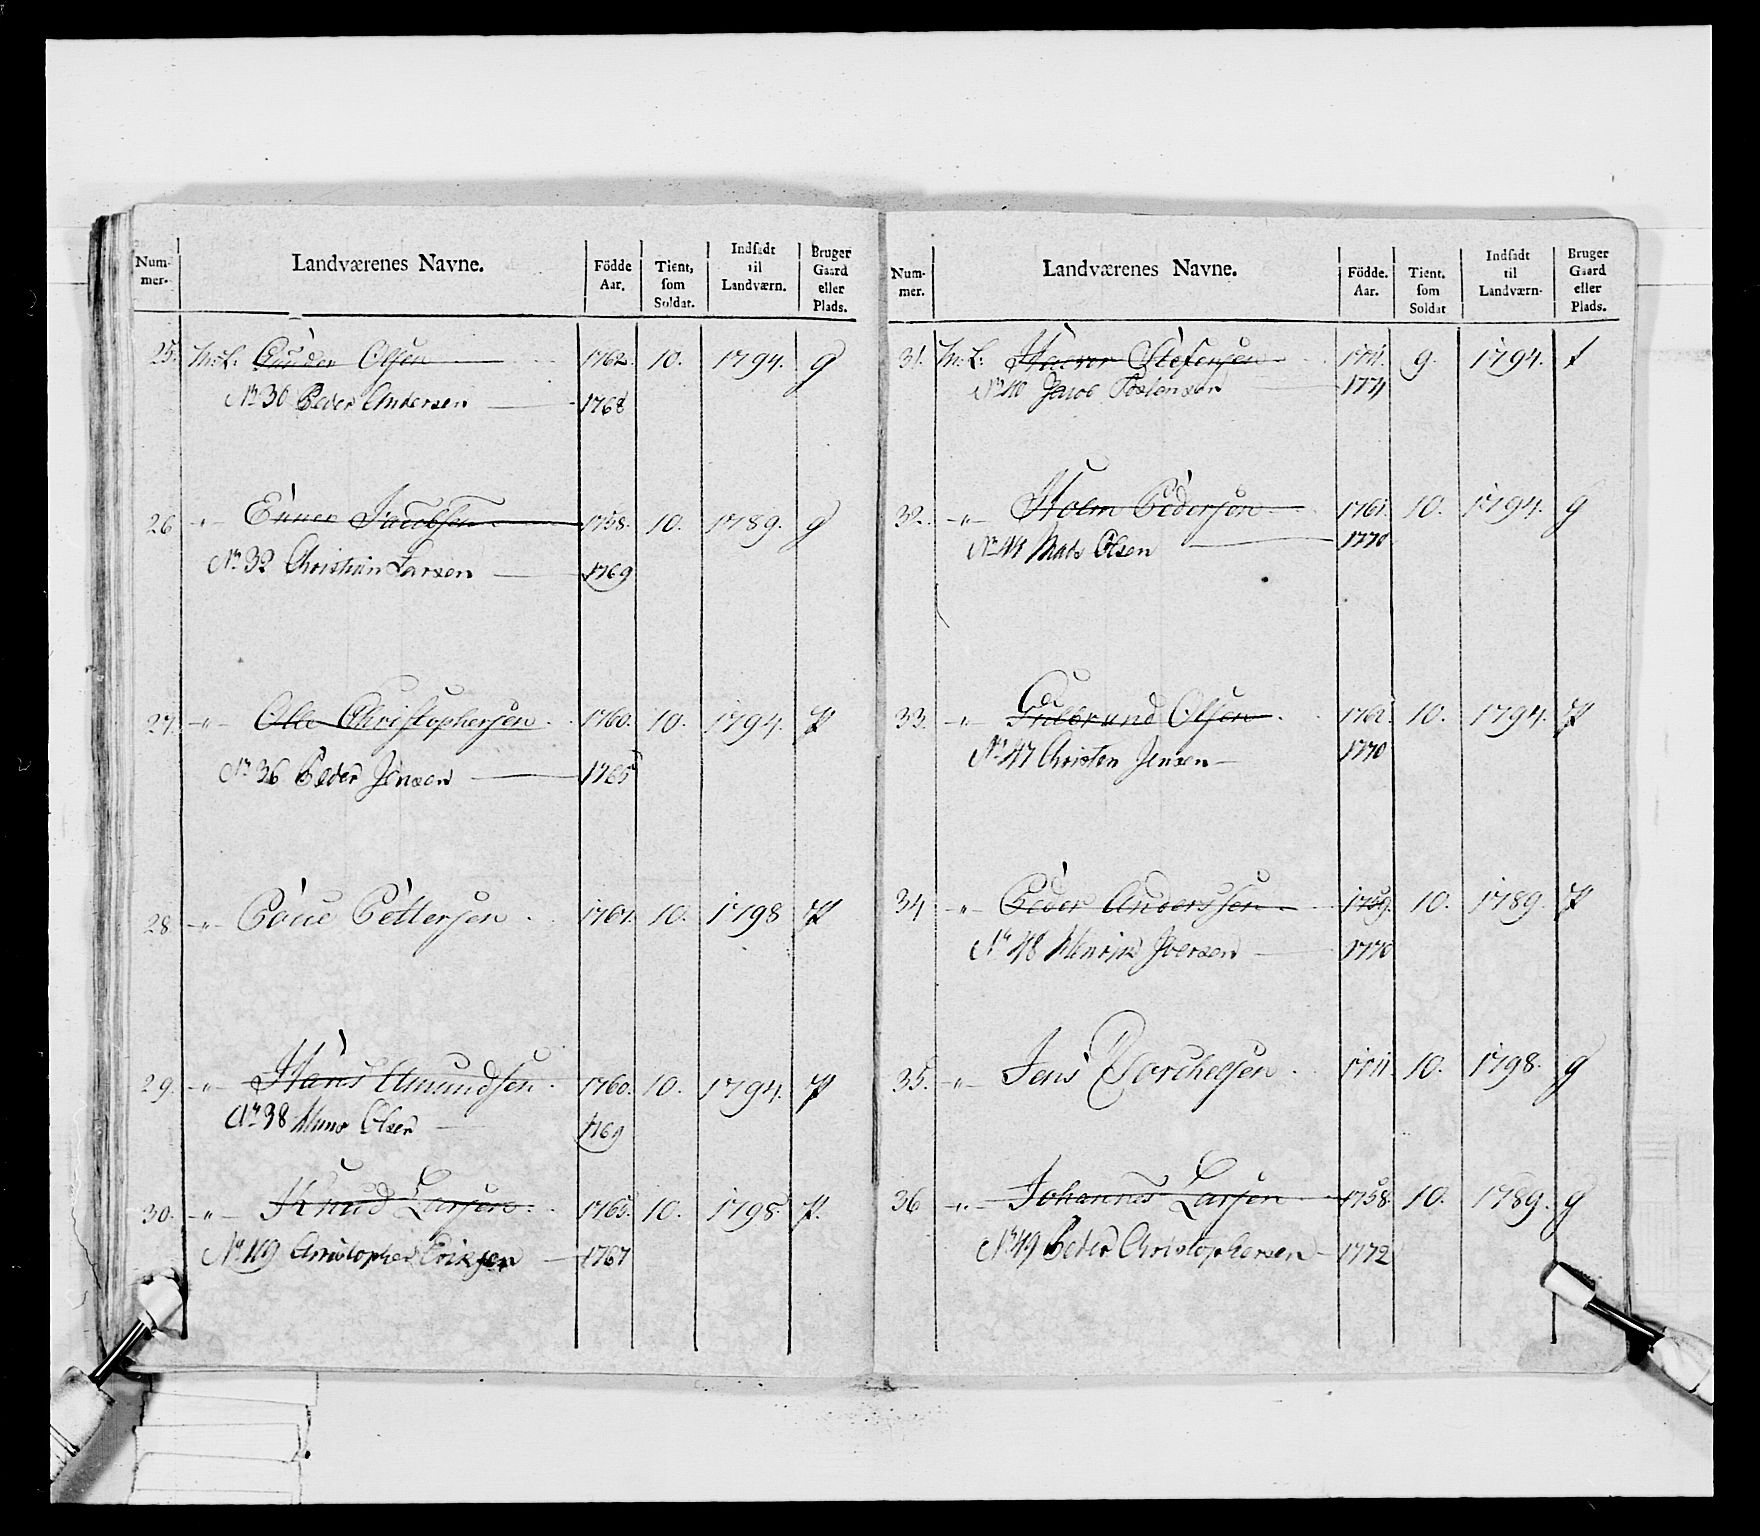 Num-mer. Landværenes Navne. Födde Aar. Tient, som Soldat. Indsadt til Landværn. Bruger Gaard eller Plads.
25. Olsen 1762. 10. 1794. g
No 30 Peder Andersen 1768
26 -"- Enner Jacobsen 1758. 10. 1789. g
No 32 Christian Larsen 1769
27. -"- Ole Christophersen 1760. 10. 1794. P
No 36 Peder Jensen 1765
28 -"- Pettersen 1767. 10. 1798 P
29. -"- Hans Amundsen 1760. 10. 1794. P
No 38 Hans Olsen 1769
30. -"- Knud Larsen 1765. 10. 1795. P.
No 109 Christopher Eriksen 1767
Num-mer. Landværenes Navne. Födde. Aar. Tient. som Soldat Indsadt til Landværn. Bruger Gaard eller Plads.
31. Stefensen 9. 1794.
No 40 Jacob 1771
32. -"- Holm Pedersen 1761. 10. 1794. g
No 44 Mads Olsen 1770
33. -"- Gulbrand Olsen 1762. 10. 1794. P
No 47 Christen Jensen 1770
34 -"- Peder Anderssen 1759. 10. 1789. P
No 48 Henrik Iversen 1770
35. -"- Jens Torchelsen 10. 1798. g
36 -"- Johannes Larsen 1758. 10. 1789. g
No 49 Peder Christophersen 1772